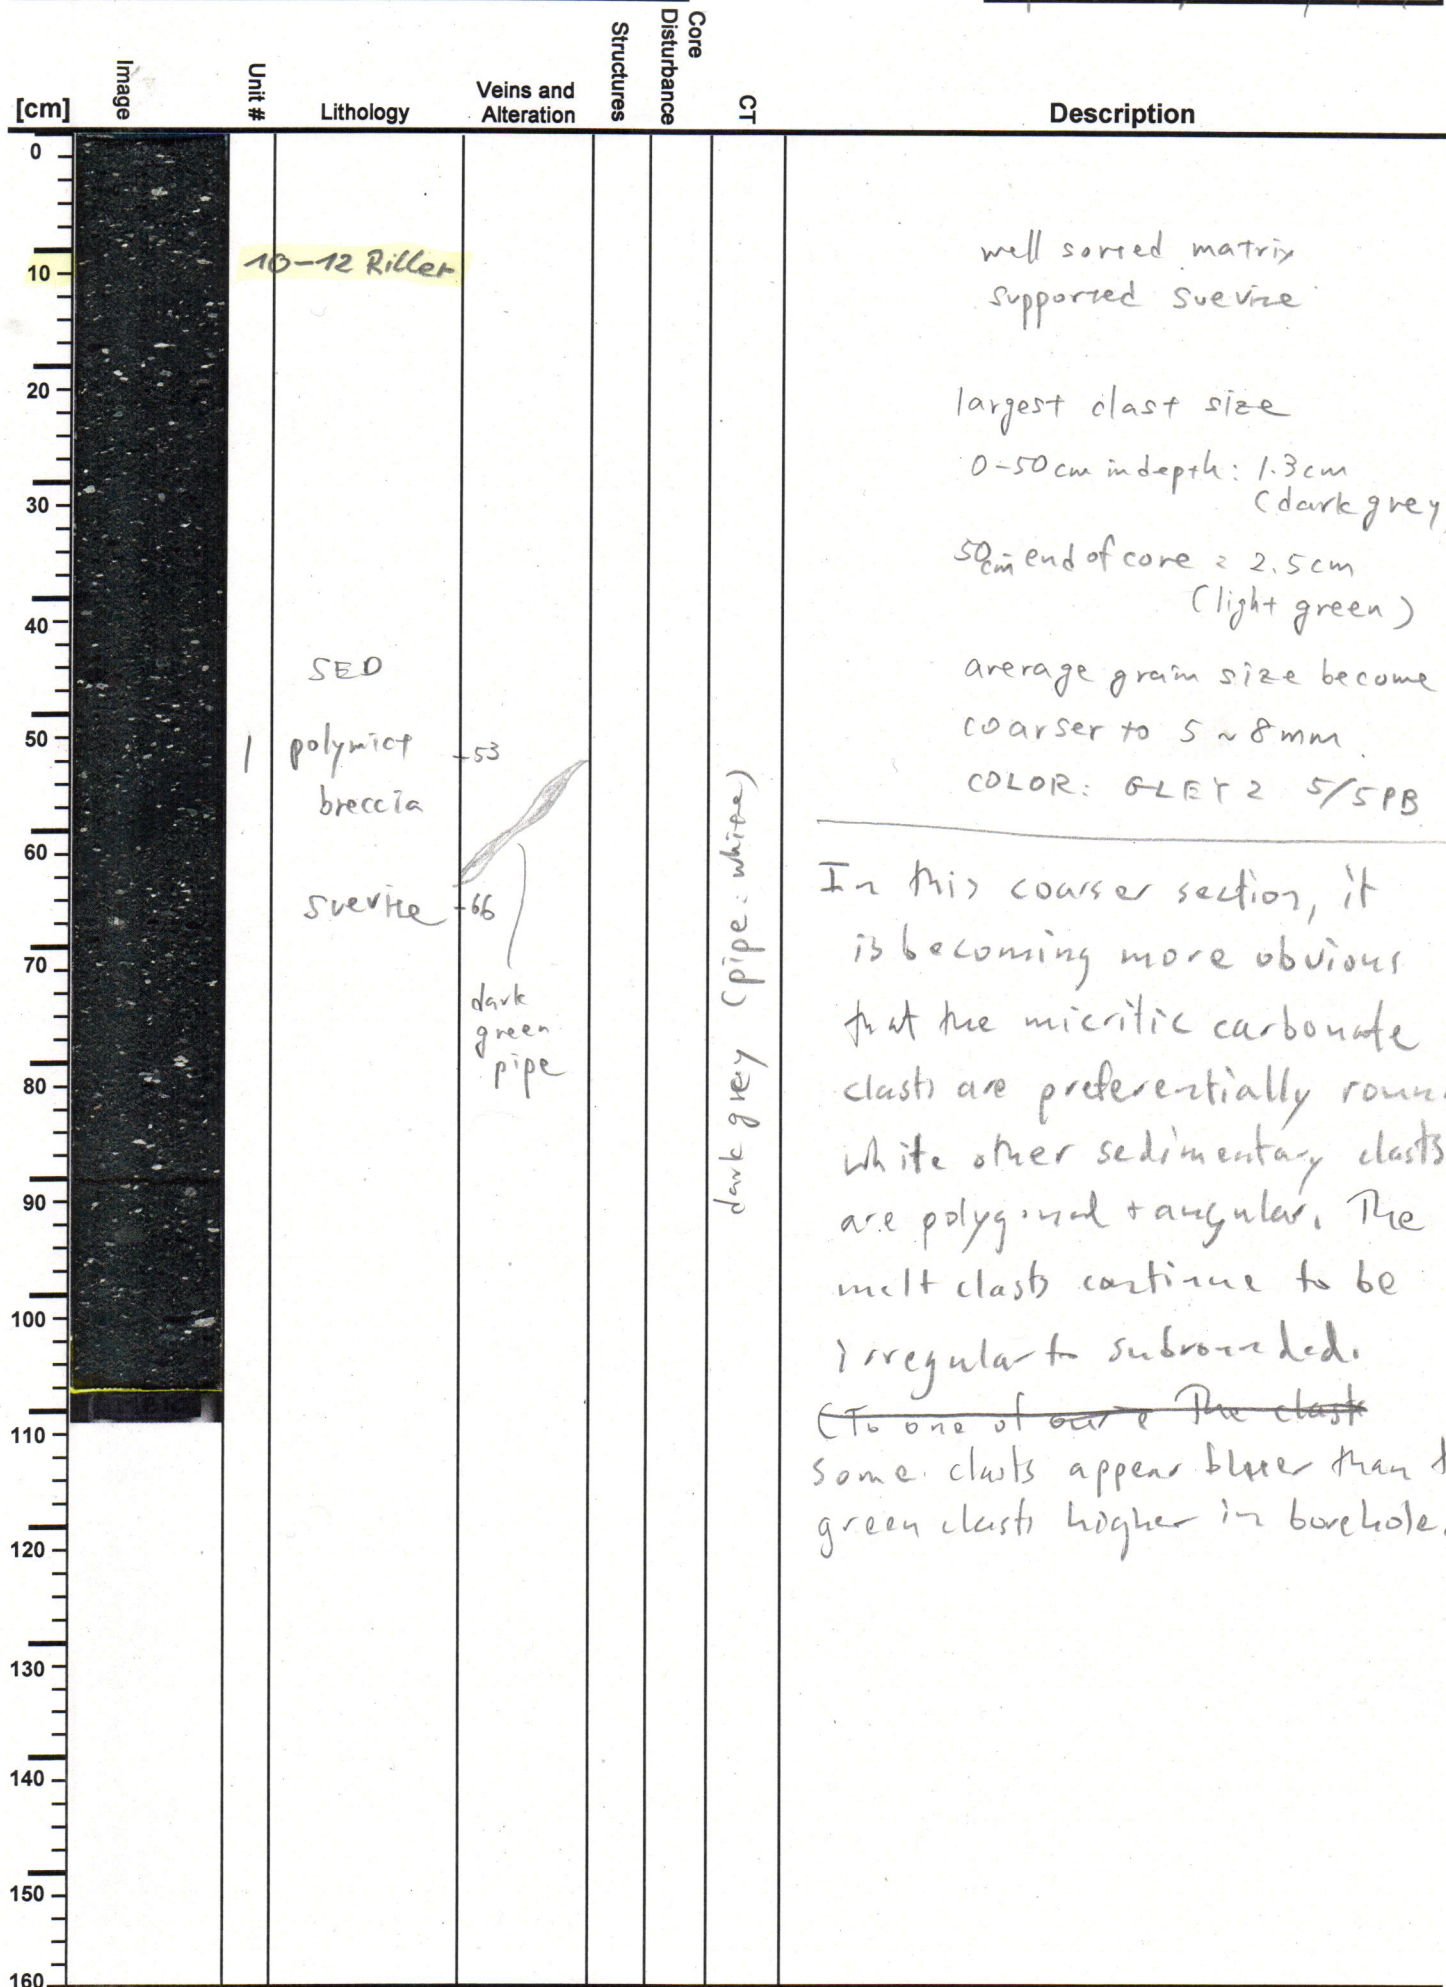 [cm]
Image
Unit #
Lithology
Veins and
Alteration
Structures
Core
Disturbance
CT
Description
0
10
20
30
40
50
60
70
80
90
100
110
120
130
140
150
160
10-12 Riller
1
SED
polymict
breccia
suevite
53
66
dark
green
pipe
dark grey (pipe: white)
well sorted matrix
supported suevite
largest clast size
0-50 cm in depth: 1.3 cm
(dark grey
50cm - end of core = 2.5 cm
(light green)
average grain size become
coarser to 5 ~ 8 mm
COLOR: GLEY 2 5/5PB
In this coarser section, it
is becoming more obvious
that the micritic carbonate
clasts are preferentially roun
white other sedimentary clasts
are polygonal + angular. The
melt clasts continue to be
irregular to subrounded.
(To one of The clast
some clasts appear bluer than
green clasts higher in borehole.